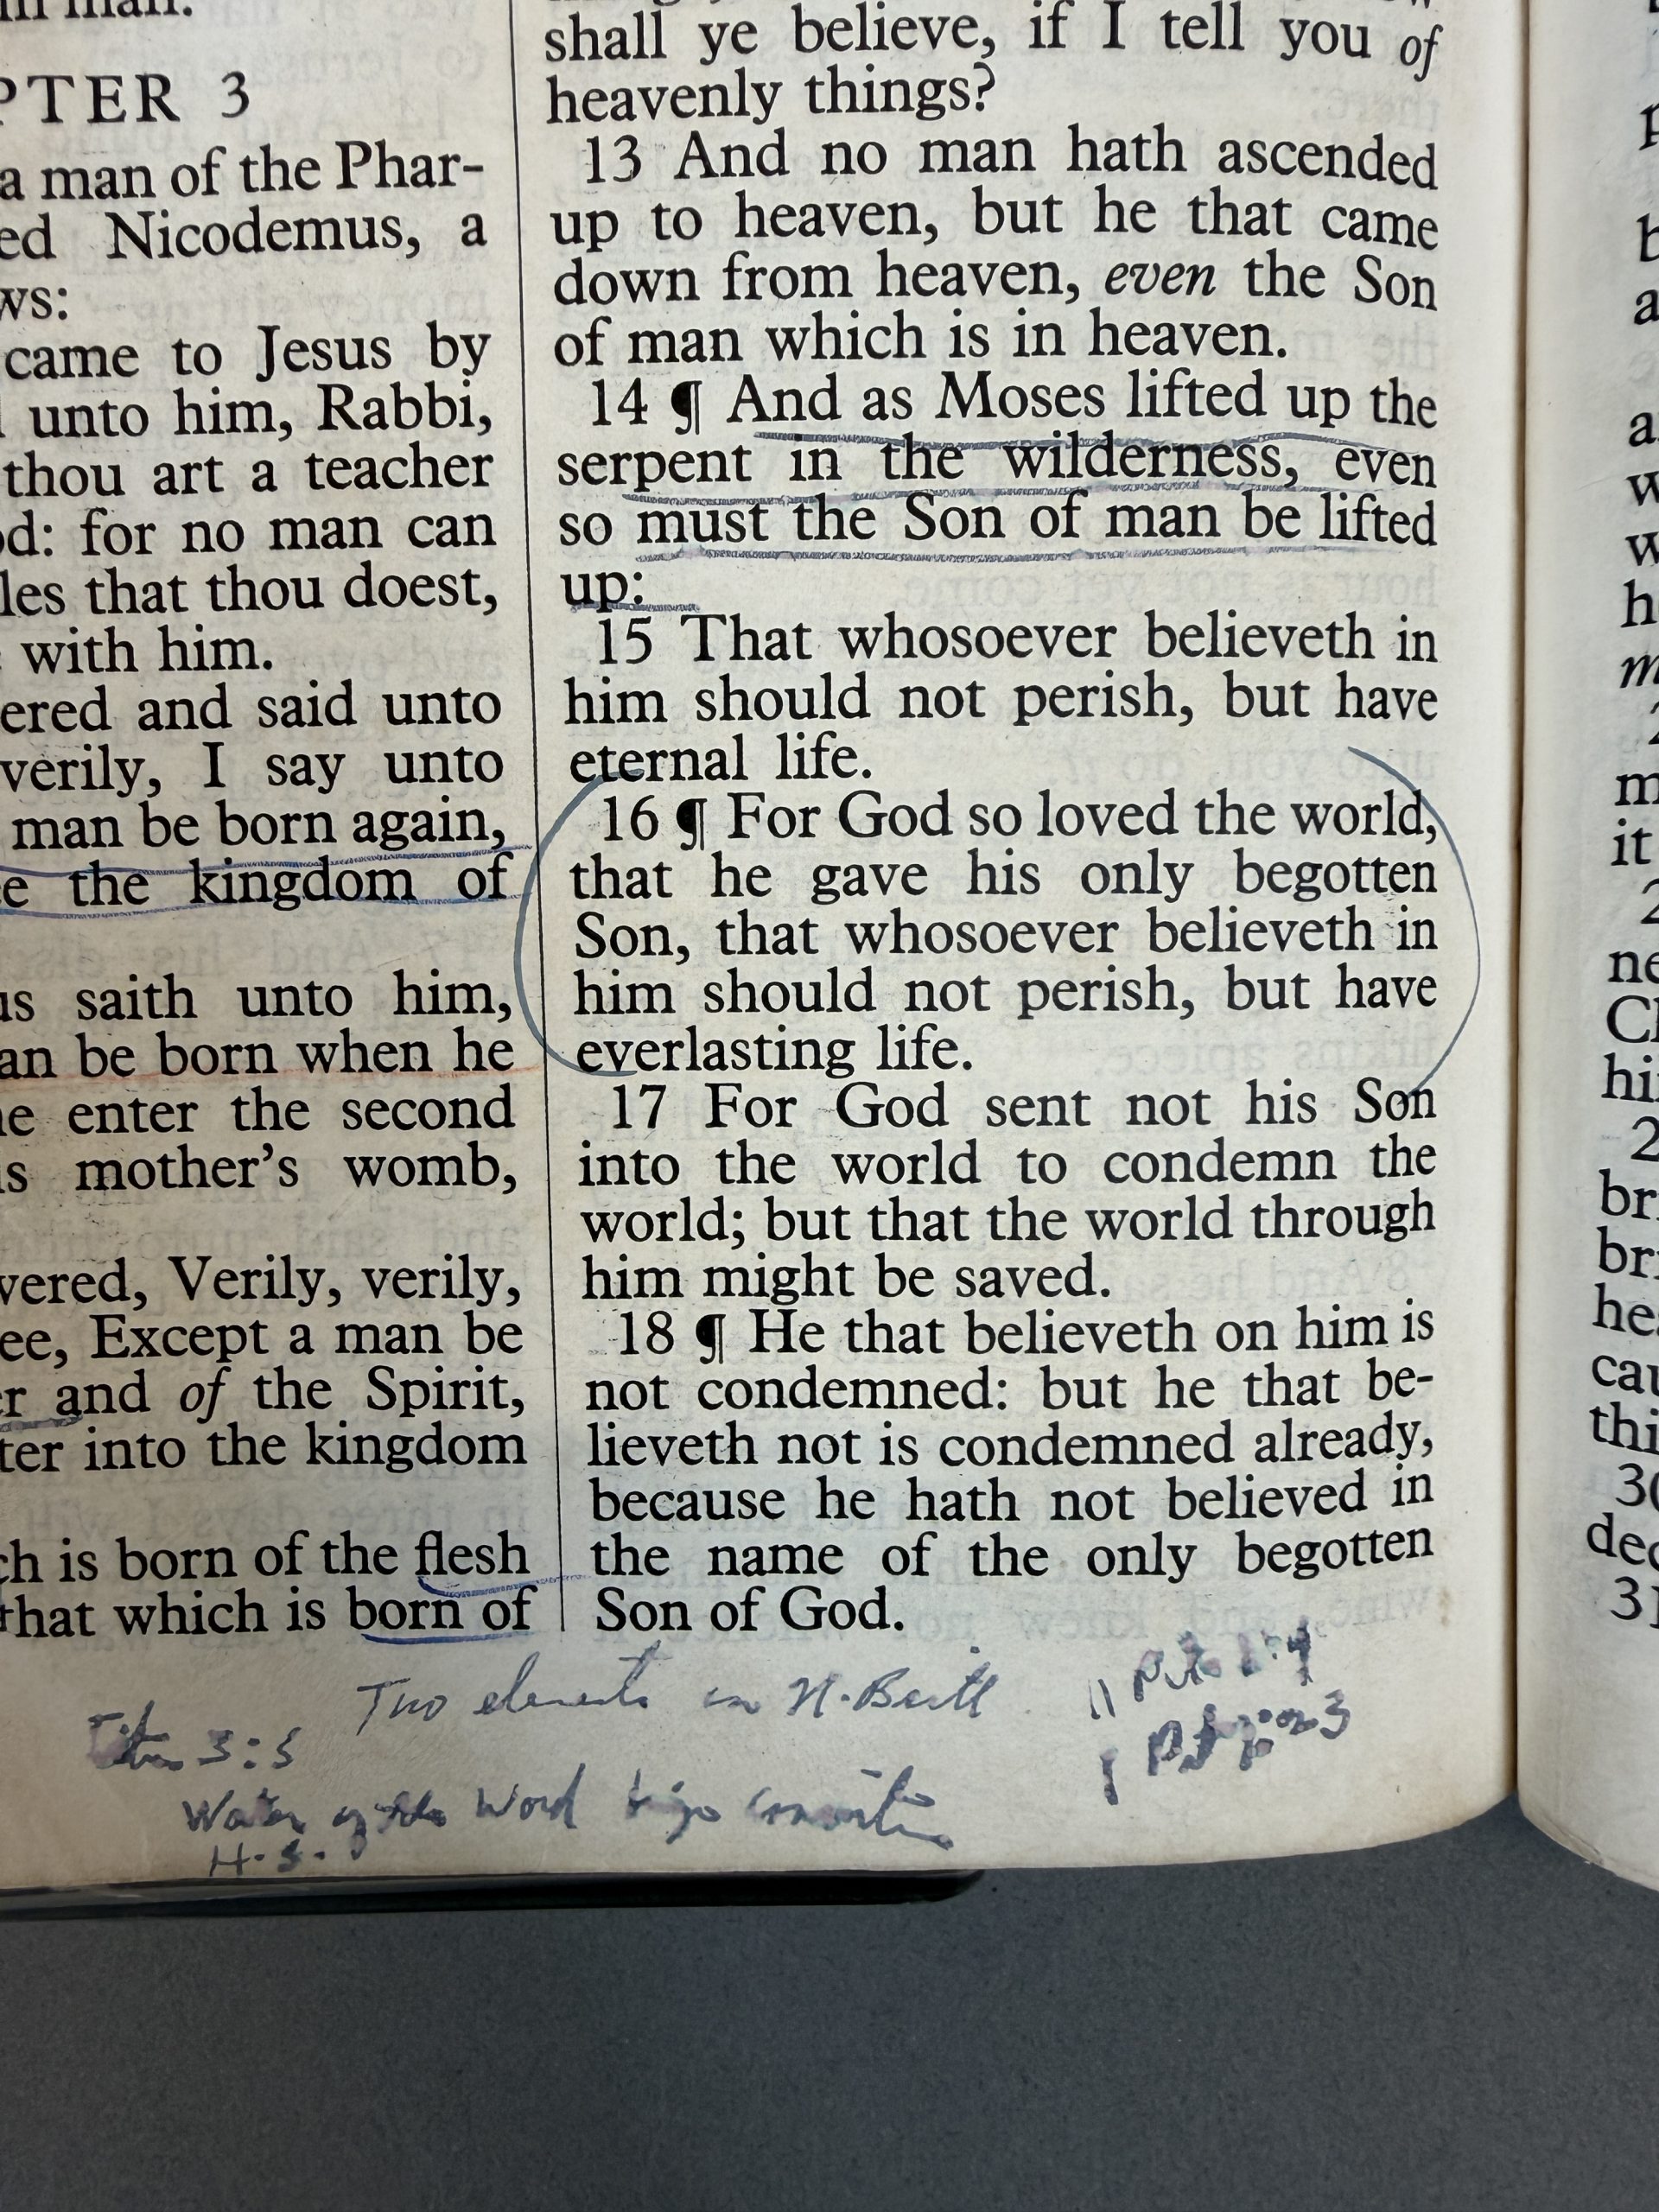 PTER 3
a man of the Phar-
ed Nicodemus, a
ws:
came to Jesus by
unto him, Rabbi,
thou art a teacher
od: for no man can
les that thou doest,
with him.
ered and said unto
verily, I say unto
man be born again,
e the kingdom of
us saith unto him,
an be born when he
he enter the second
is mother's womb,
wered, Verily, verily,
ee, Except a man be
er and of the Spirit,
ter into the kingdom
ch is born of the flesh
that which is born of
shall ye believe, if I tell you of
heavenly things?
13 And no man hath ascended
up to heaven, but he that came
down from heaven, even the Son
of man which is in heaven.
14 ¶ And as Moses lifted up the
serpent in the wilderness, even
so must the Son of man be lifted
up:
15 That whosoever believeth in
him should not perish, but have
eternal life.
16 ¶ For God so loved the world,
that he gave his only begotten
Son, that whosoever believeth in
him should not perish, but have
everlasting life.
17 For God sent not his Son
into the world to condemn the
world; but that the world through
him might be saved.
18 ¶ He that believeth on him is
not condemned: but he that be-
lieveth not is condemned already,
because he hath not believed in
the name of the only begotten
Son of God.
Two elements in N. Birth
Titus 3:5
Water of the Word
H.S.